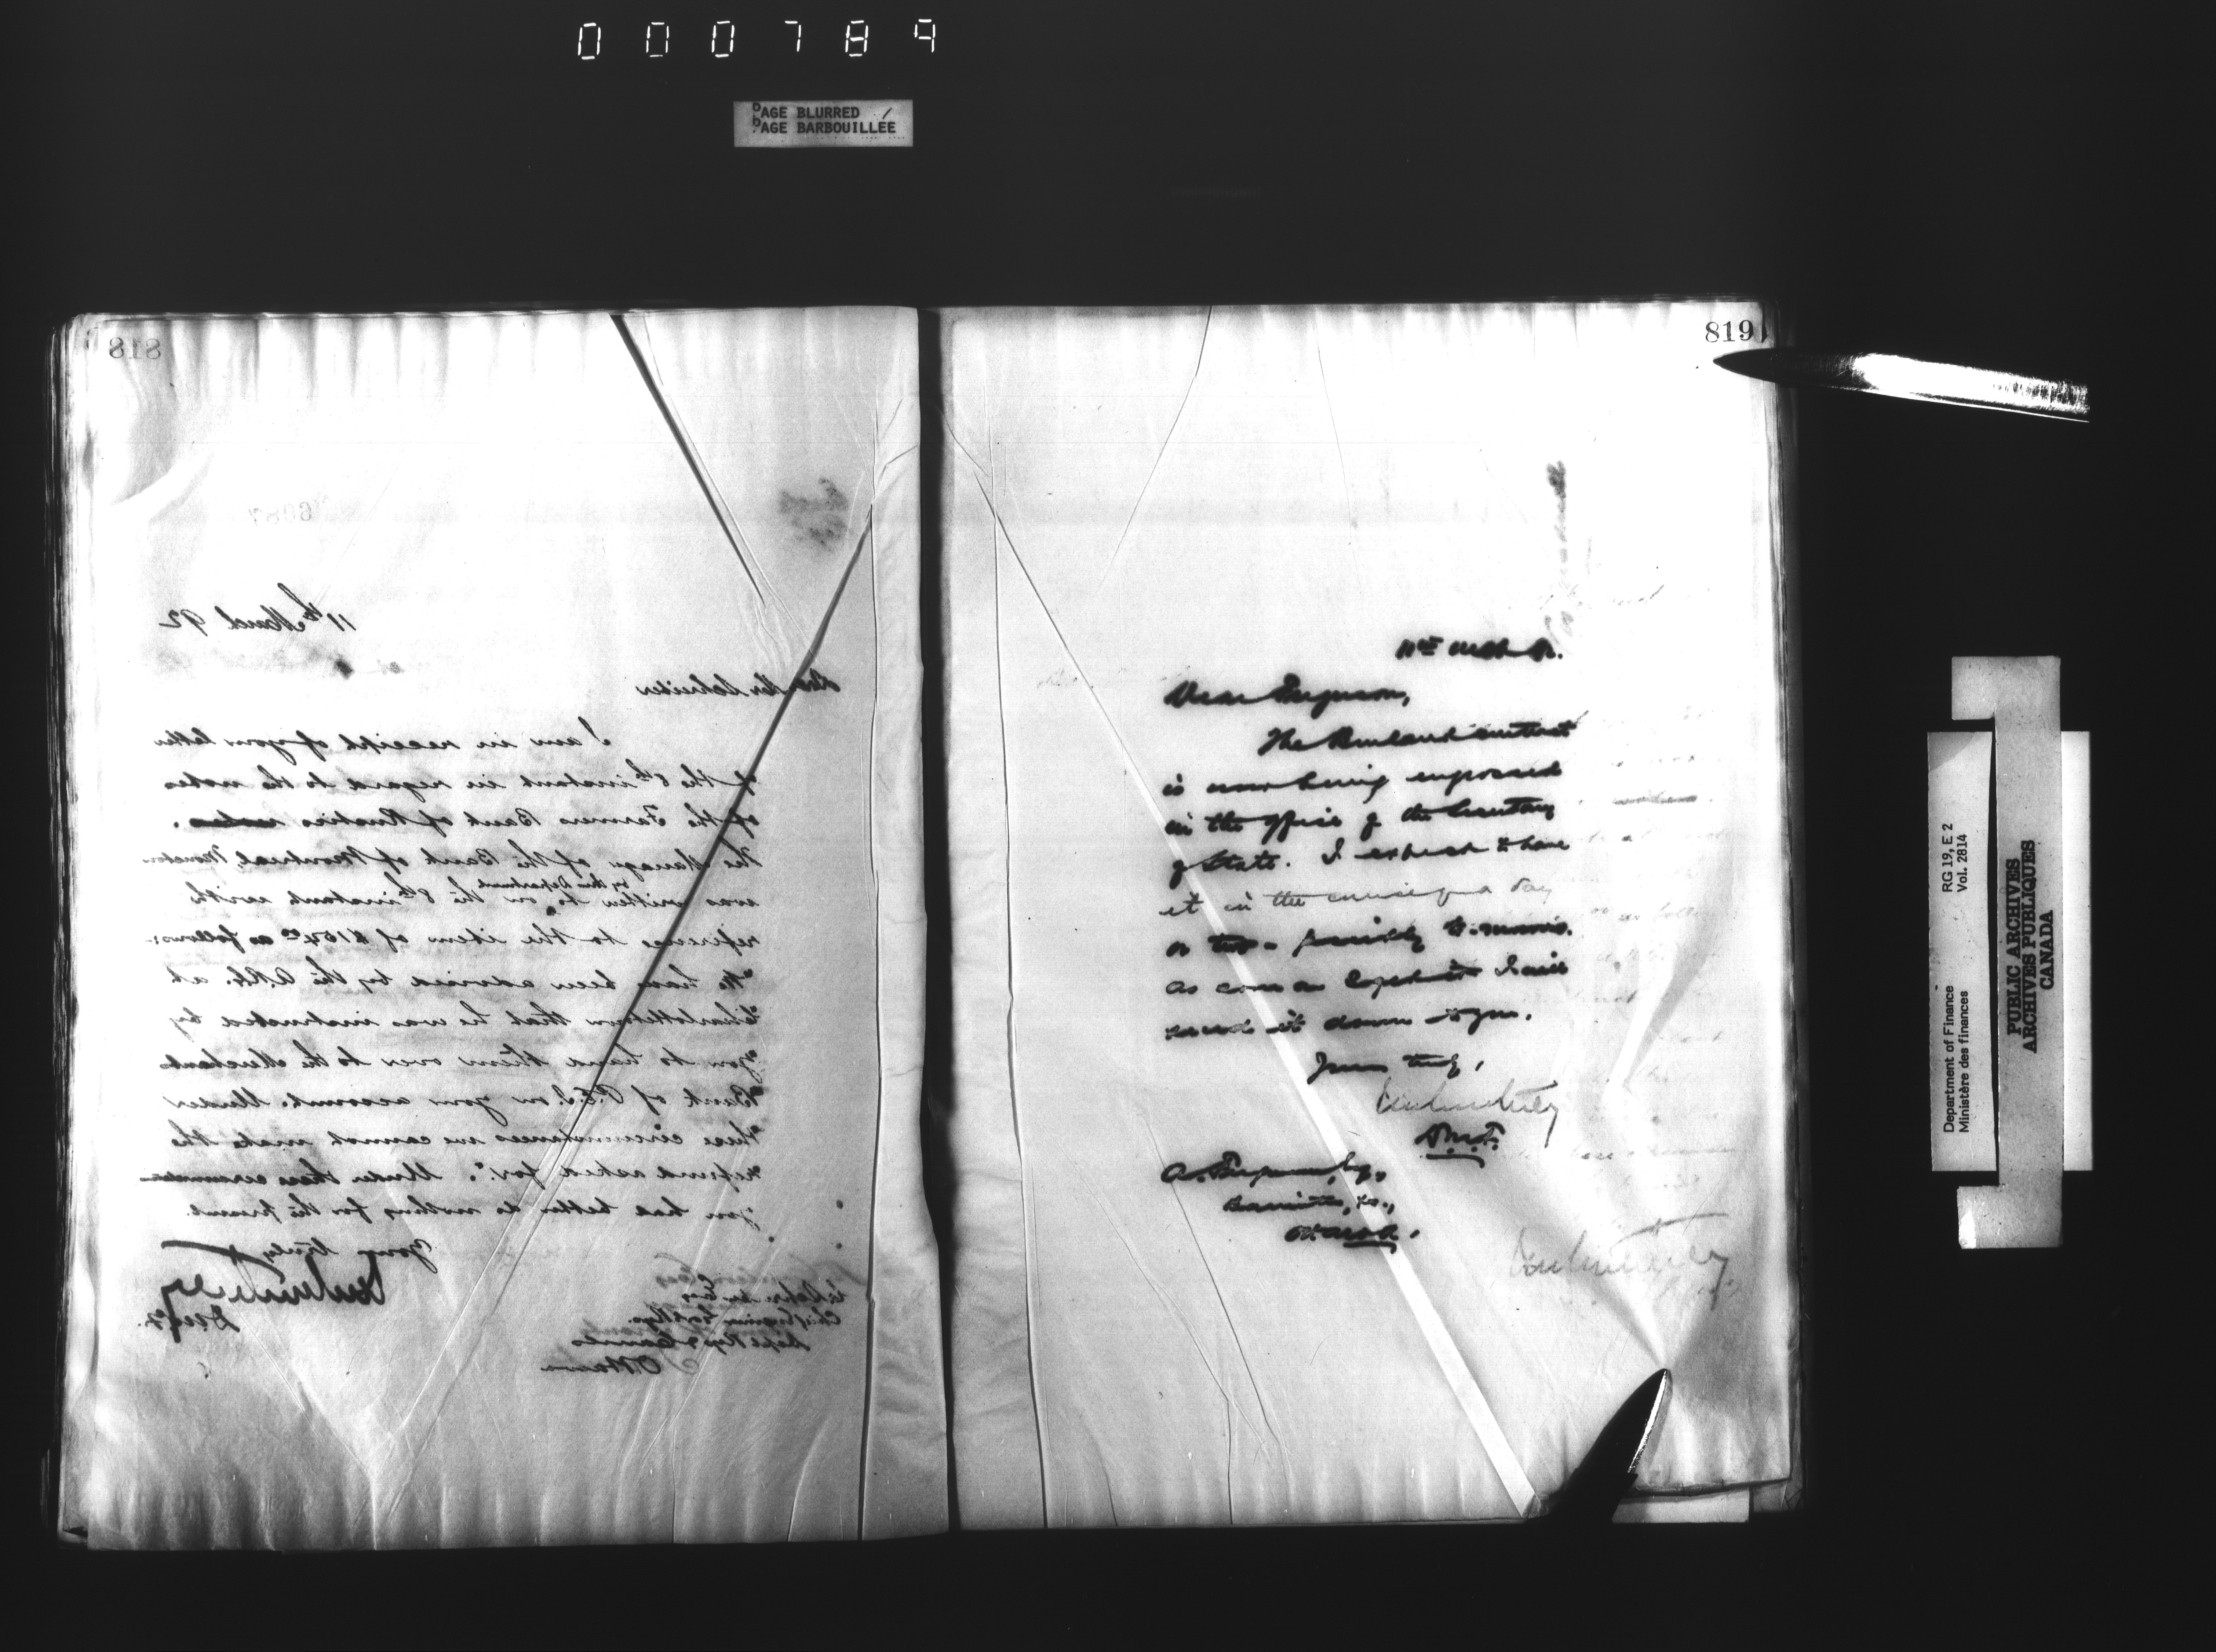 000789
PAGE BLURRED
PAGE BARBOUILLÉE
818
6087
11th March 92
Dear Mr Schreiber
I am in receipt of your letter
of the 8th instant in regard to the notes
of the Farmers Bank of Rustico notes.
The Manager of the Bank of Montreal, Moncton
was written to by this Department on the 8th instant with
reference to the item of $164.00 as follows:
"We have been advised by the A.R.G. at
"Charlottetown that he was instructed by
"you to hand them over to the Merchants
"Bank of P.E.I. on your account. Under
"these circumstances we cannot make the
"refund asked for." Under these circumstances
you had better do nothing for the present.
Yours truly
Chief Engineer Govt Rys.
Dept Rys & Canals
Ottawa
819
11th Mch
Dear Ferguson,
The contract
is now being engrossed
in the office of the Secretary
of State. I expect to have
it in the course of a day
or two - possibly
as soon as I will
send it down to you.
Yours truly,
D.M.F.
A. Ferguson, Esq.,
Barrister, &c.,
Ottawa.
Department of Finance
Ministère des finances
RG 19, E 2
Vol. 2814
PUBLIC ARCHIVES
ARCHIVES PUBLIQUES
CANADA